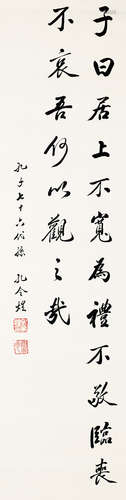 子曰居上不寬為禮不敬臨喪
不哀吾何以觀之哉
孔子七十六代孫 孔令煜